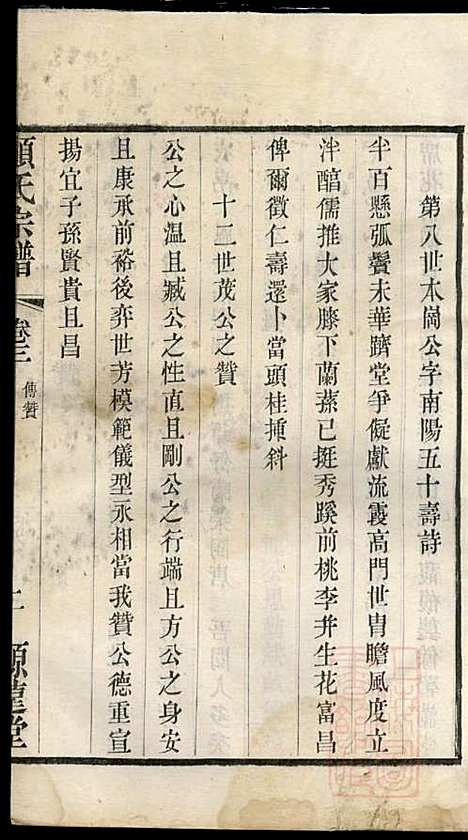 第八世木崗公字南陽五十壽詩
半百懸弧鬢未華躋堂爭儗獻流霞高門世冑瞻風度立
泮醕儒推大家膝下蘭蓀已挺秀蹊前桃李并生花富昌
俾爾徵仁壽還卜當頭桂插斜
十二世茂公之贊
公之心温且臧公之性直且剛公之行端且方公之身安
且康承前裕後弈世芳模範儀型永相當我贊公德重宣
揚宜子孫賢貴且昌
顧氏宗譜
卷三
傳贊
源遠堂